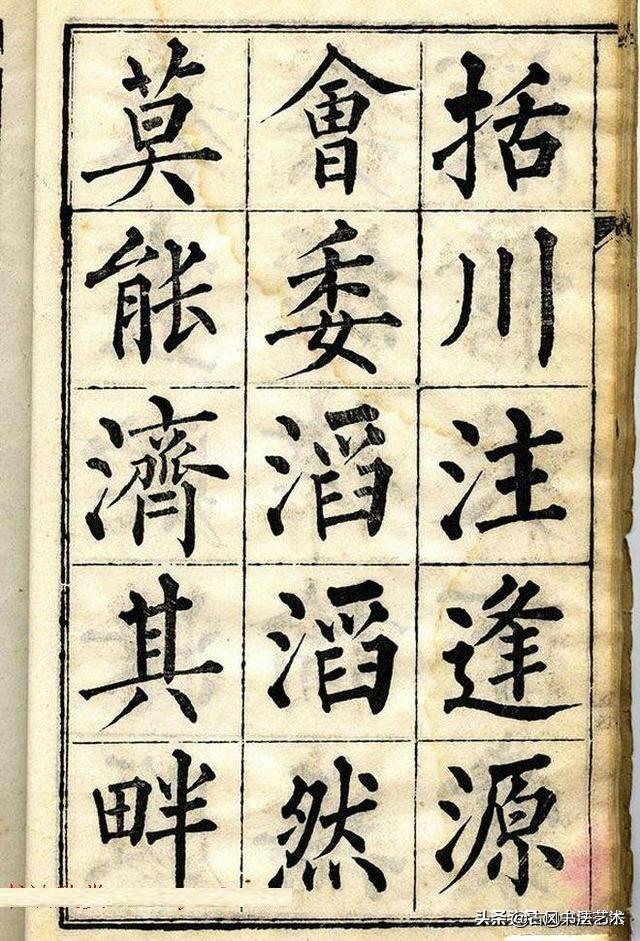 括川注逢源
會委滔滔然
莫能濟其畔
头条@古风书法艺术